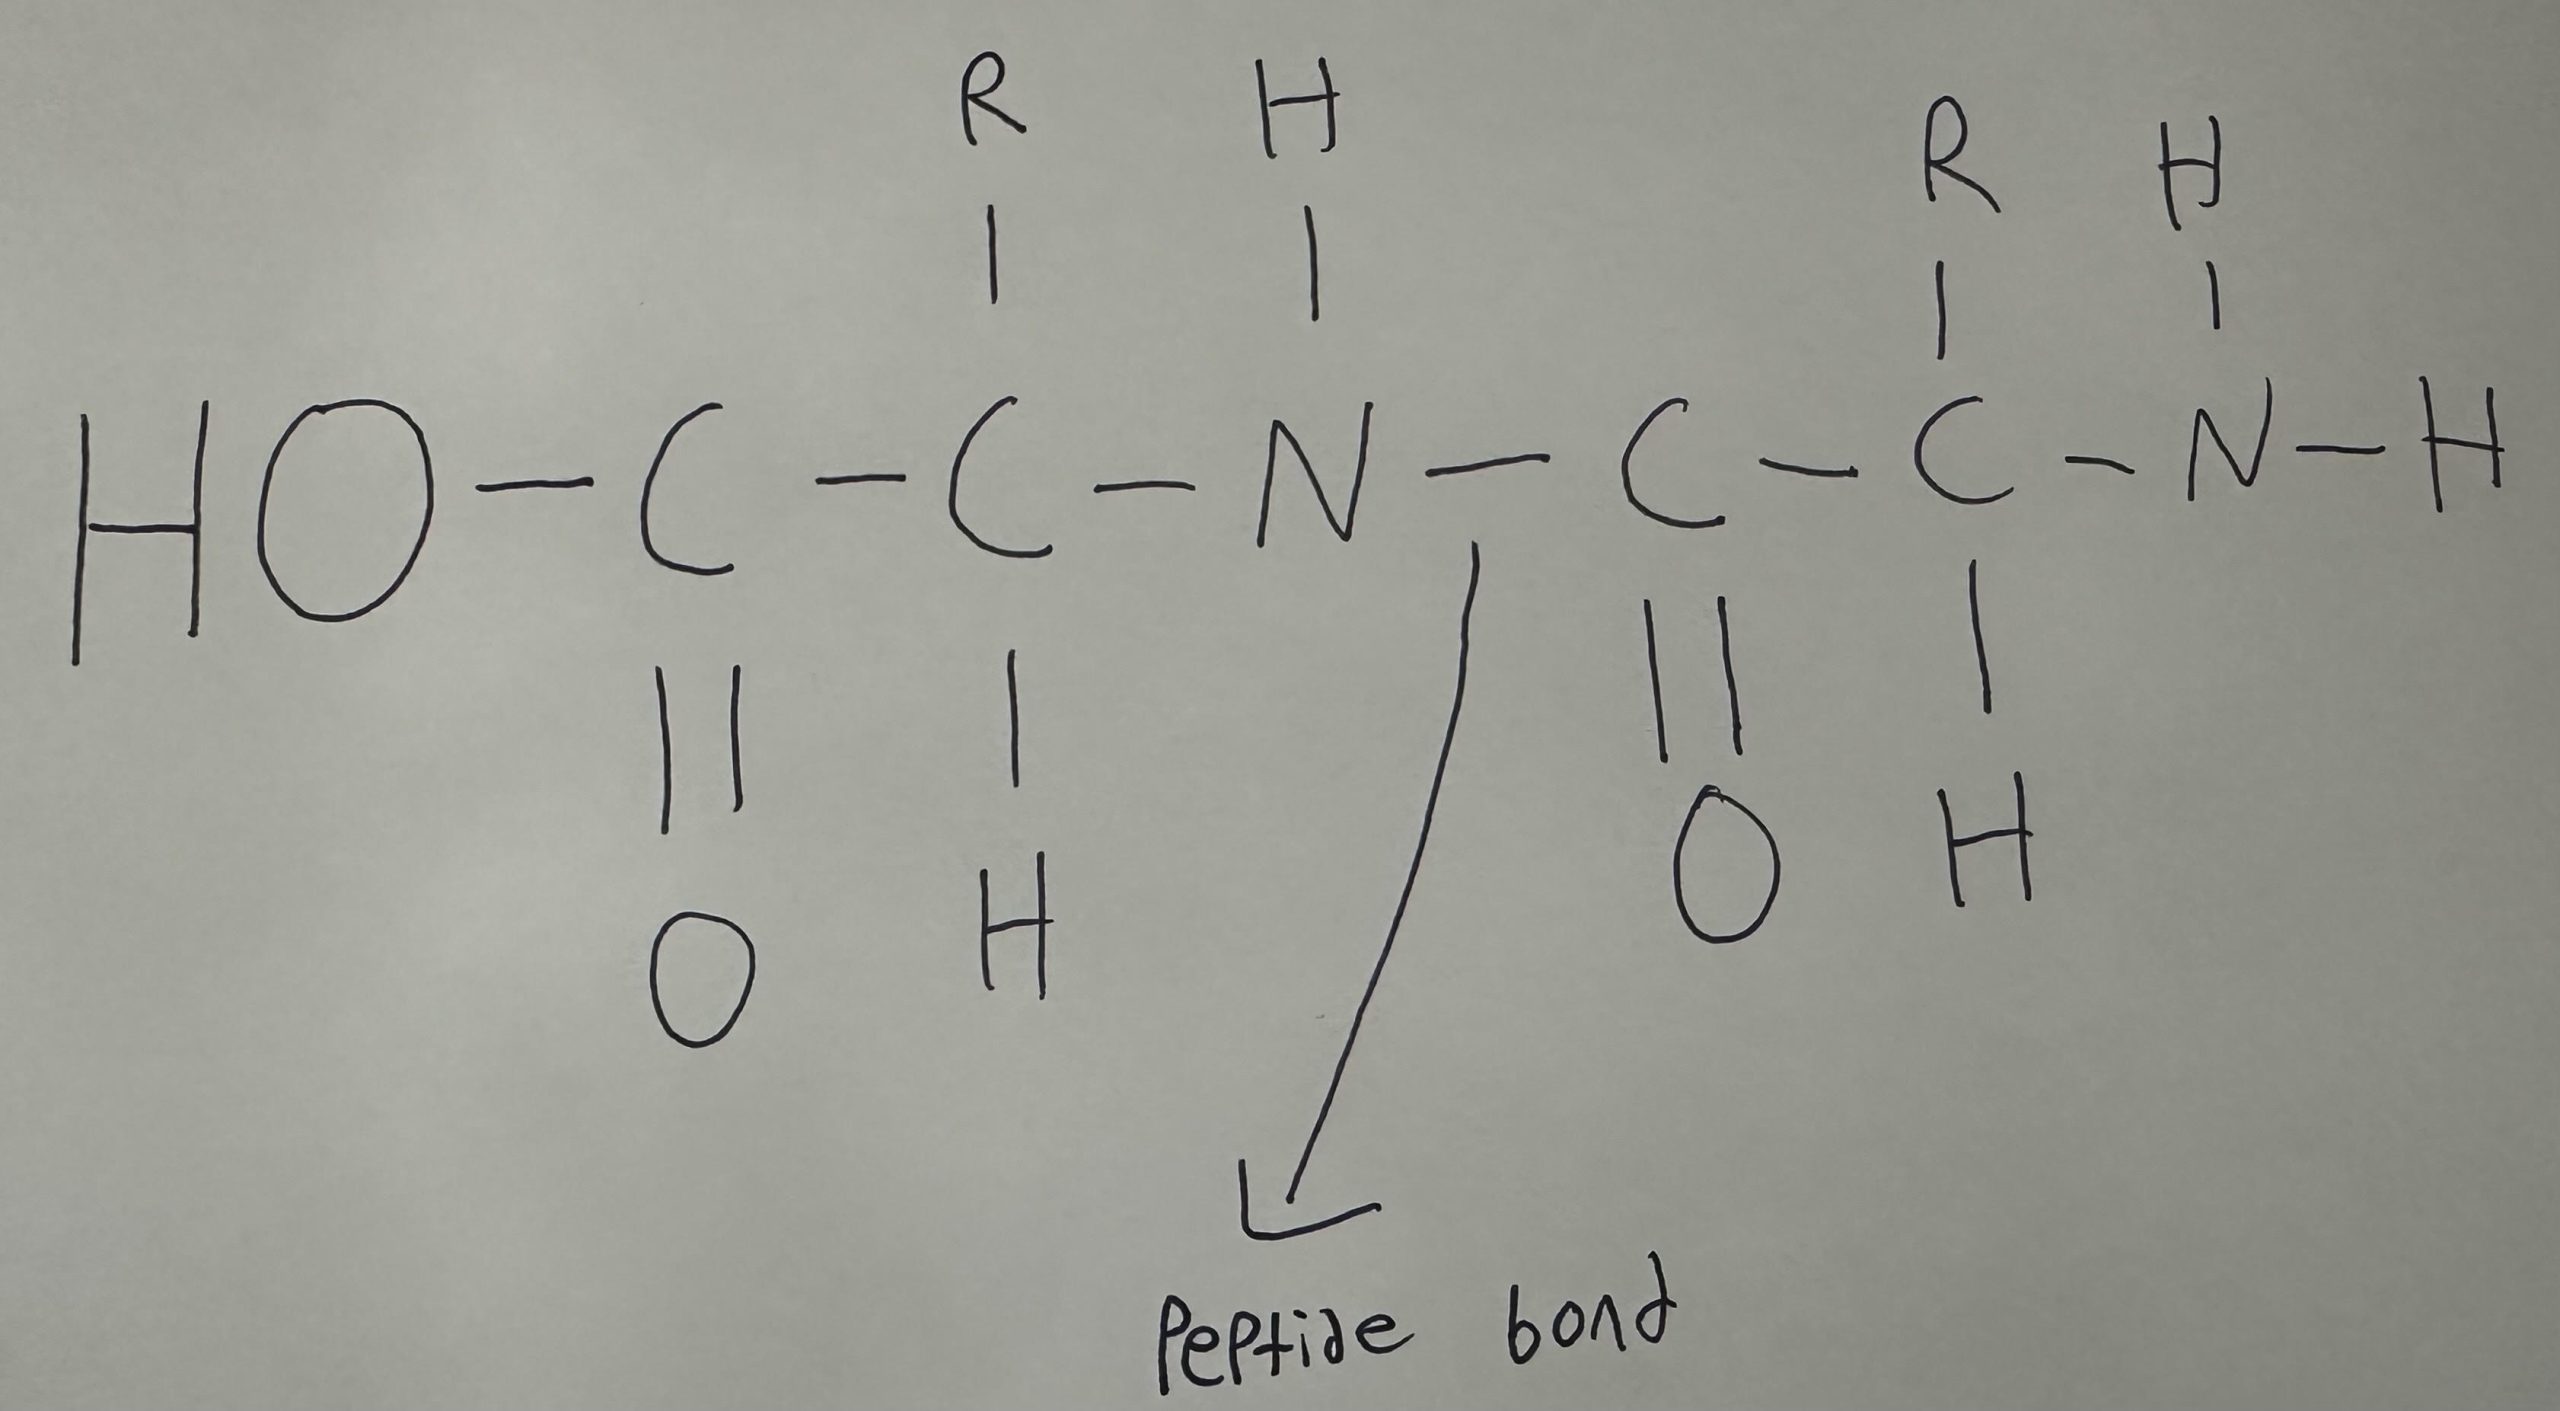 R H R H
HO - C - C - N - C - C - N - H
O H O H
Peptide bond